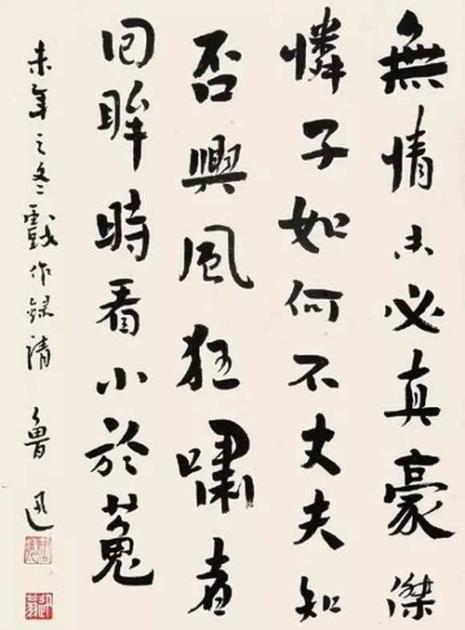 無情未必真豪傑
憐子如何不丈夫知
否興風狂嘯者
回眸時看小於菟
未年之冬戲作錄請 魯迅